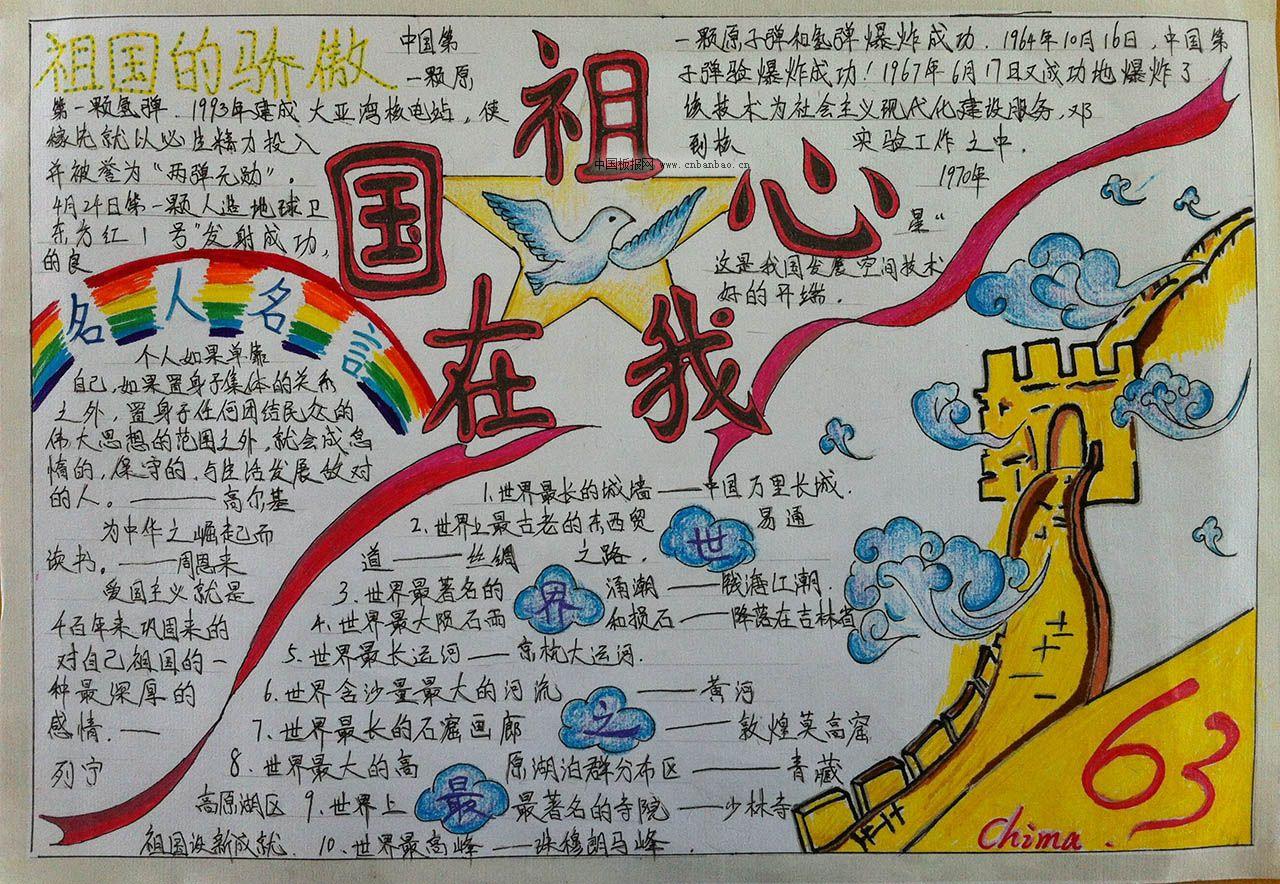 祖国的骄傲
中国第
一颗原
第一颗氢弹．1993年建成大亚湾核电站，使
稼先就以必生精力投入
并被誉为“两弹元勋”。
4月24日第一颗人造地球卫
东方红1号”发射成功，
的良
祖
国
心
在
我
中国板报网 www.cnbanbao.cn
一颗原子弹和氢弹爆炸成功．1964年10月16日，中国第
子弹验爆炸成功！1967年6月17日又成功地爆炸了
该技术为社会主义现代化建设服务，邓
到核 实验工作之中．
1970年
星“
这是我国发展空间技术
好的开端．
名人名言
个人如果单靠
自己，如果置身于集体的关系
之外，置身于任何团结民众的
伟大思想的范围之外，就会成怠
惰的，保守的，与生活发展敌对
的人。——高尔基
为中华之崛起而
读书。——周恩来
爱国主义就是
千百年来巩固来的
对自己祖国的一
种最深厚的
感情．—
列宁
世界之最
1.世界最长的城墙——中国万里长城．
2．世界上最古老的东西贸 易通
道——丝绸 之路．
3．世界最著名的 涌潮——钱海江潮．
4．世界最大陨石雨 和损石——降落在吉林省
5．世界最长运河——京杭大运河．
6．世界含沙量最大的河流——黄河
7．世界最长的石窟画廊——敦煌莫高窟
8．世界最大的高 原湖泊群分布区——青藏
高原湖区 9．世界上 最著名的寺院——少林寺
祖国设新成就． 10．世界最高峰——珠穆朗马峰．
63
China .